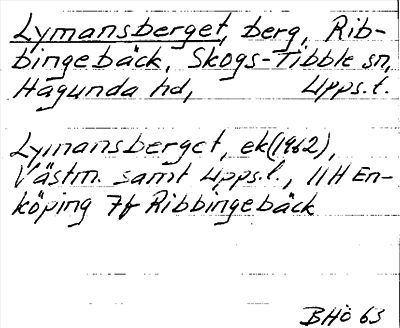 Lymansberget, berg, Rib-
bingebäck, Skogs-Tibble sn,
Hagunda hd, Upps.l.
Lymansberget, ek(1962),
Västm. samt Upps.l., 11H En-
köping 7f Ribbingebäck
BHÖ 63